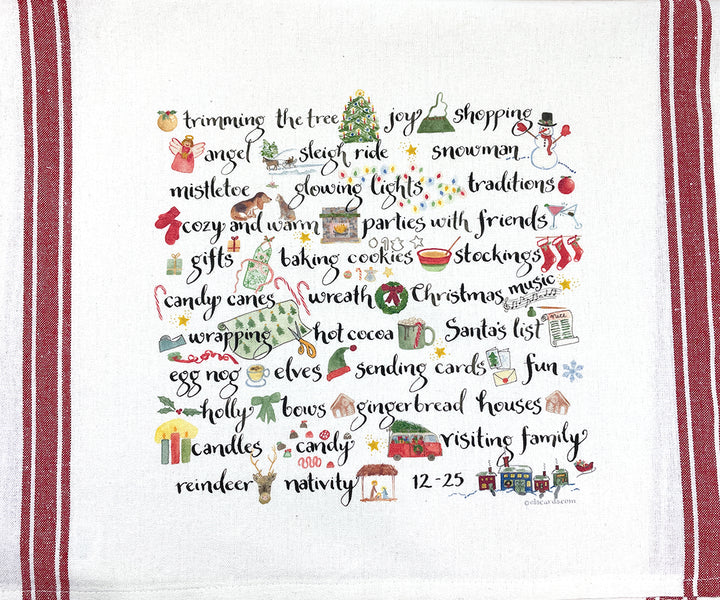 trimming the tree joy shopping
angel sleigh ride snowman
mistletoe glowing lights traditions
cozy and warm parties with friends
gifts baking cookies stockings
candy canes wreath Christmas music
wrapping hot cocoa Santa's list
Nice
egg nog elves sending cards fun
holly bows gingerbread houses
candles candy visiting family
reindeer nativity 12-25
©clscards.com